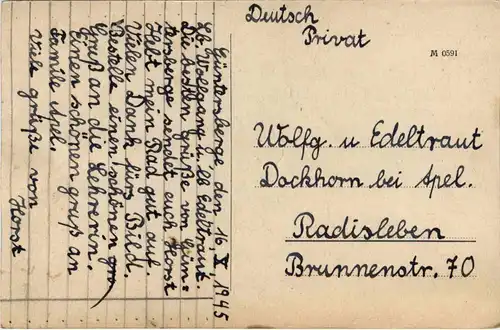 Güntersberge den 16 X. 1945
Lb. Wolfgang u. lb Edeltraut.
Die besten grüße von Gün=
tersberge sendet euch Horst
Hebt mein Rad gut auf.
Vielen Dank fürs Bild.
Bestelle einen schönen gru
Gruß an die Lehrerin.
Einen schönen gruß an
Familie Apel.
Viele grüße von
Horst
Deutsch
Privat
M 0591
Wolfg. u Edeltraut
Dockhorn bei Apel.
Radisleben
Brunnenstr. 70